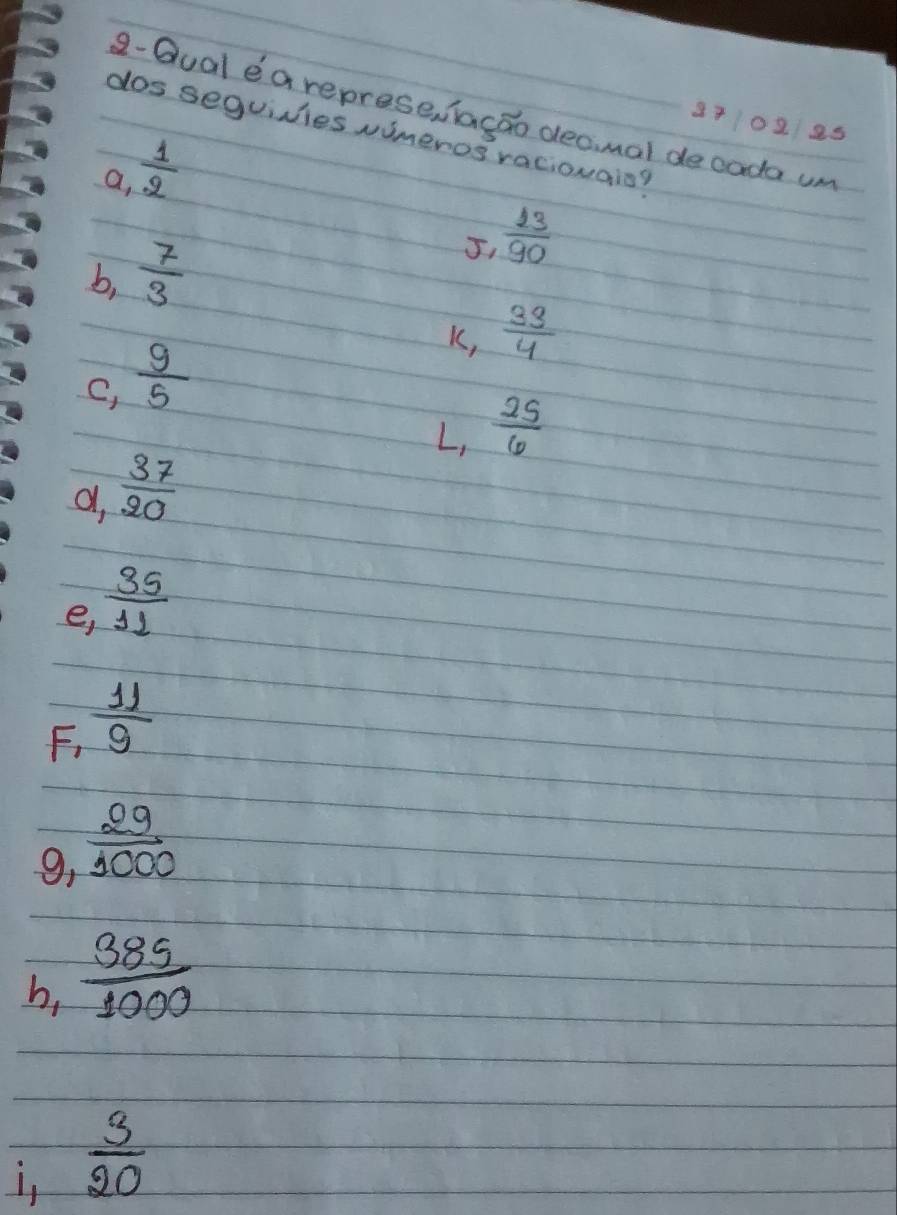 27/02/25
2-Qual é a representação decimal de cada um
dos seguintes números racionais?
a, 1/2
b, 7/3
c, 9/5
d, 37/20
e, 35/11
F, 11/9
g, 29/1000
h, 385/1000
i, 3/20
J, 13/90
K, 33/4
L, 25/6